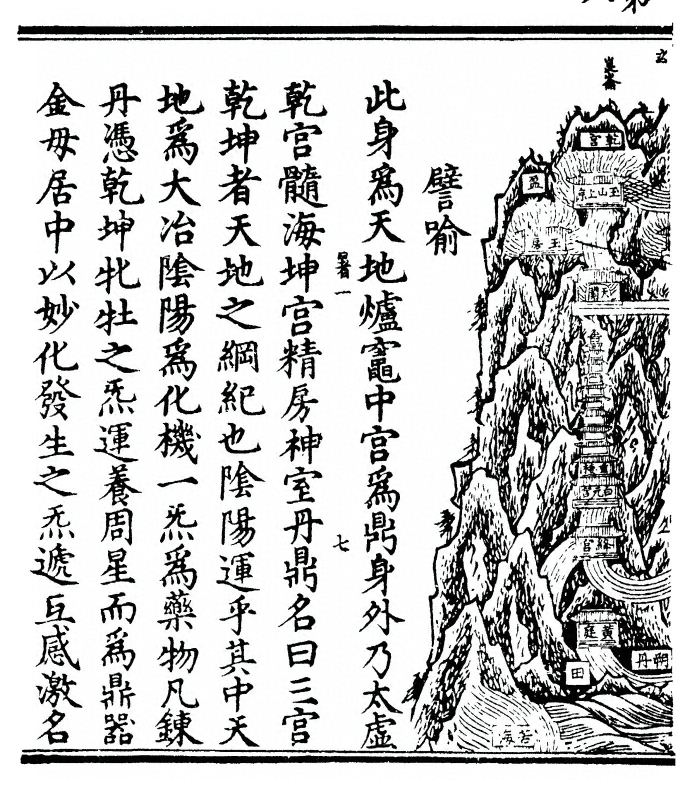 崑崙
乾宮
玉山上京
盈
玉房
天關
絳宮
黃庭
朔丹
田
苦海
譬喻
此身為天地爐竈中宮為鼎身外乃太虛
乾宮髓海坤宮精房神室丹鼎名曰三宮
乾坤者天地之綱紀也陰陽運乎其中天
地為大冶陰陽為化機一炁為藥物凡鍊
丹憑乾坤牝牡之炁運養周星而為鼎器
金母居中以妙化發生之炁遞互感激名
七